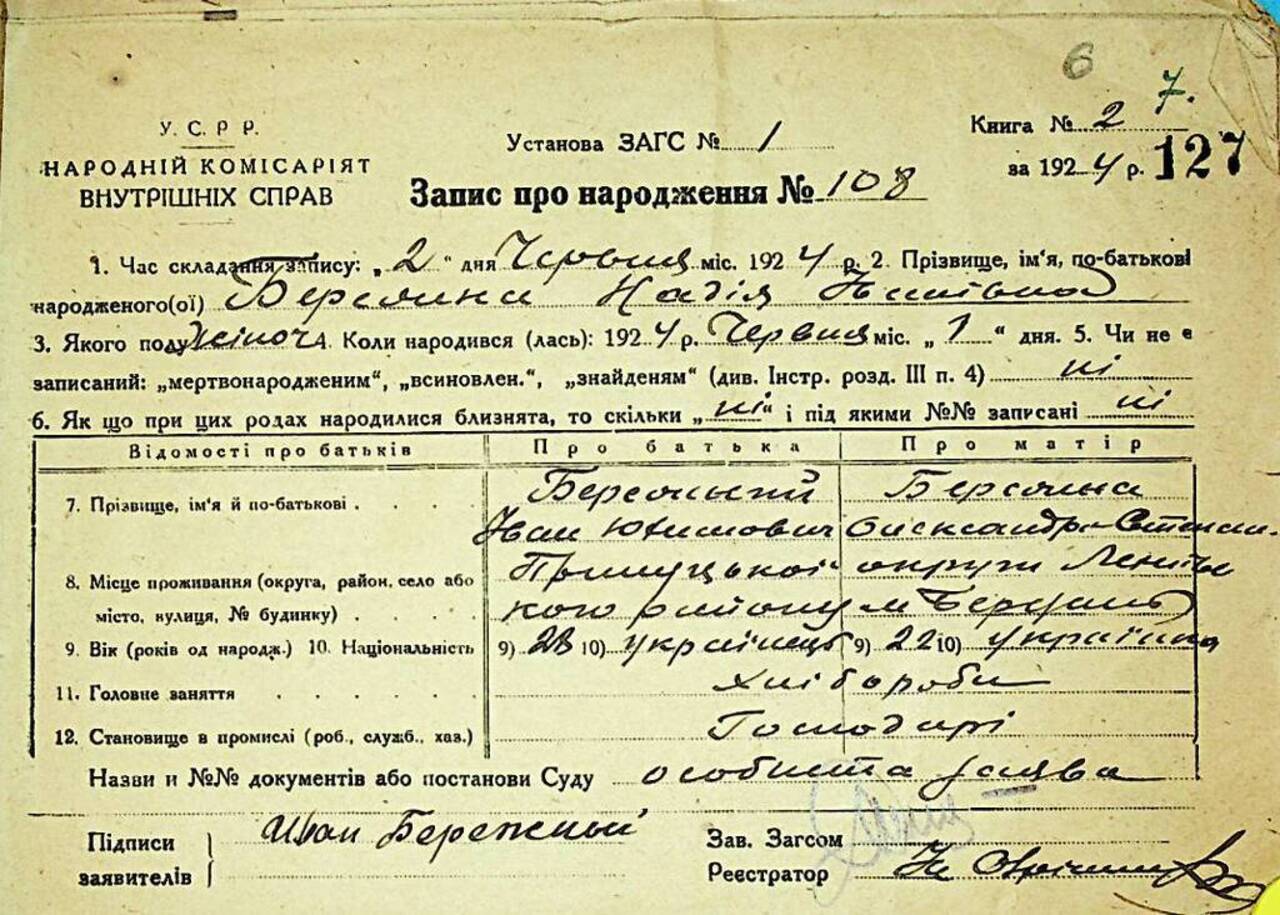 6
7.
У. С. Р Р.
НАРОДНІЙ КОМІСАРІЯТ
ВНУТРІШНІХ СПРАВ
Установа ЗАГС № 1
Книга № 2
за 1924 р. 127
Запис про народження № 108
1. Час складання запису: „2“ дня Червня міс. 1924 р. 2. Прізвище, ім'я, по-батькові
народженого(ої) Надія Іванівна
3. Якого полу жіноч. 4. Коли народився (лась): 1924 р. Червня міс. „1“ дня. 5. Чи не є
записаний: „мертвонародженим“, „всиновлен.“, „знайденям“ (див. Інстр. розд. III п. 4) ні
6. Як що при цих родах народилися близнята, то скільки „ні“ і під якими №№ записані ні
Відомості про батьків Про батька Про матір
7. Прізвище, ім'я й по-батькові
Іван Юхимович Олександра Степан.
8. Місце проживання (округа, район, село або
місто, вулиця, № будинку) Прилуцької округи
району м Березань
9. Вік (років од народж.) 10. Національність 9) 23 10) українець 9) 22 10) українка
11. Головне заняття Хлібороби
12. Становище в промислі (роб., служб., хаз.) Господарі
Назви и №№ документів або постанови Суду особиста заява
Підписи заявителів Иван Бережный
Зав. Загсом
Реєстратор